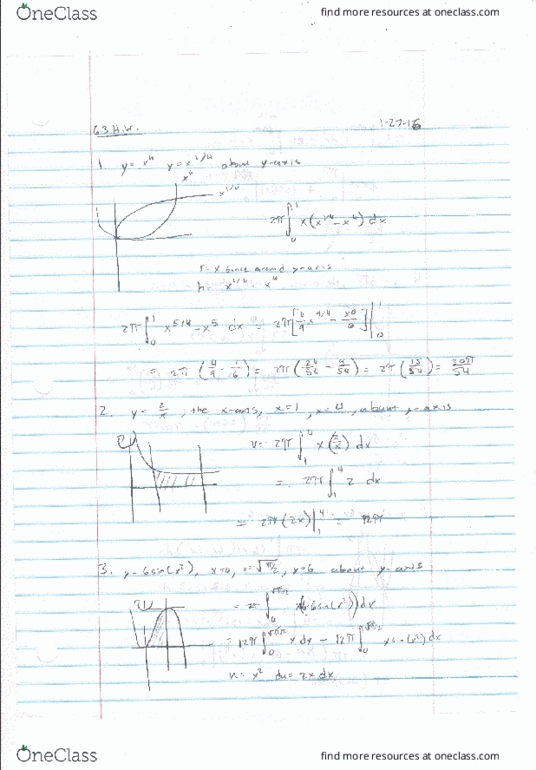 OneClass find more resources at oneclass.com
6.3 H.W. 1-27-16
1. y = x⁴ y = x^(1/4) about y-axis
x⁴
x^(1/4)
2π∫₀¹ x(x^(1/4) - x⁴) dx
r = x since around y-axis
h = x^(1/4) - x⁴
2π∫₀¹ x^(5/4) - x⁵ dx = 2π[4/9 x^(9/4) - x⁶/6]|₀¹
= 2π(4/9 - 1/6) = 2π(24/54 - 9/54) = 2π(15/54) = 30π/54
2. y = 2/x, the x-axis, x=1, x=4, about y-axis
V = 2π∫₁⁴ x(2/x) dx
= 2π∫₁⁴ 2 dx
= 2π(2x)|₁⁴ = 12π
3. y = 6sin(x²), x=0, x=√π/2, y=6 about y-axis
= 12π∫₀ x dx - 12π∫₀ xsin(x²) dx
u = x² du = 2x dx
OneClass find more resources at oneclass.com